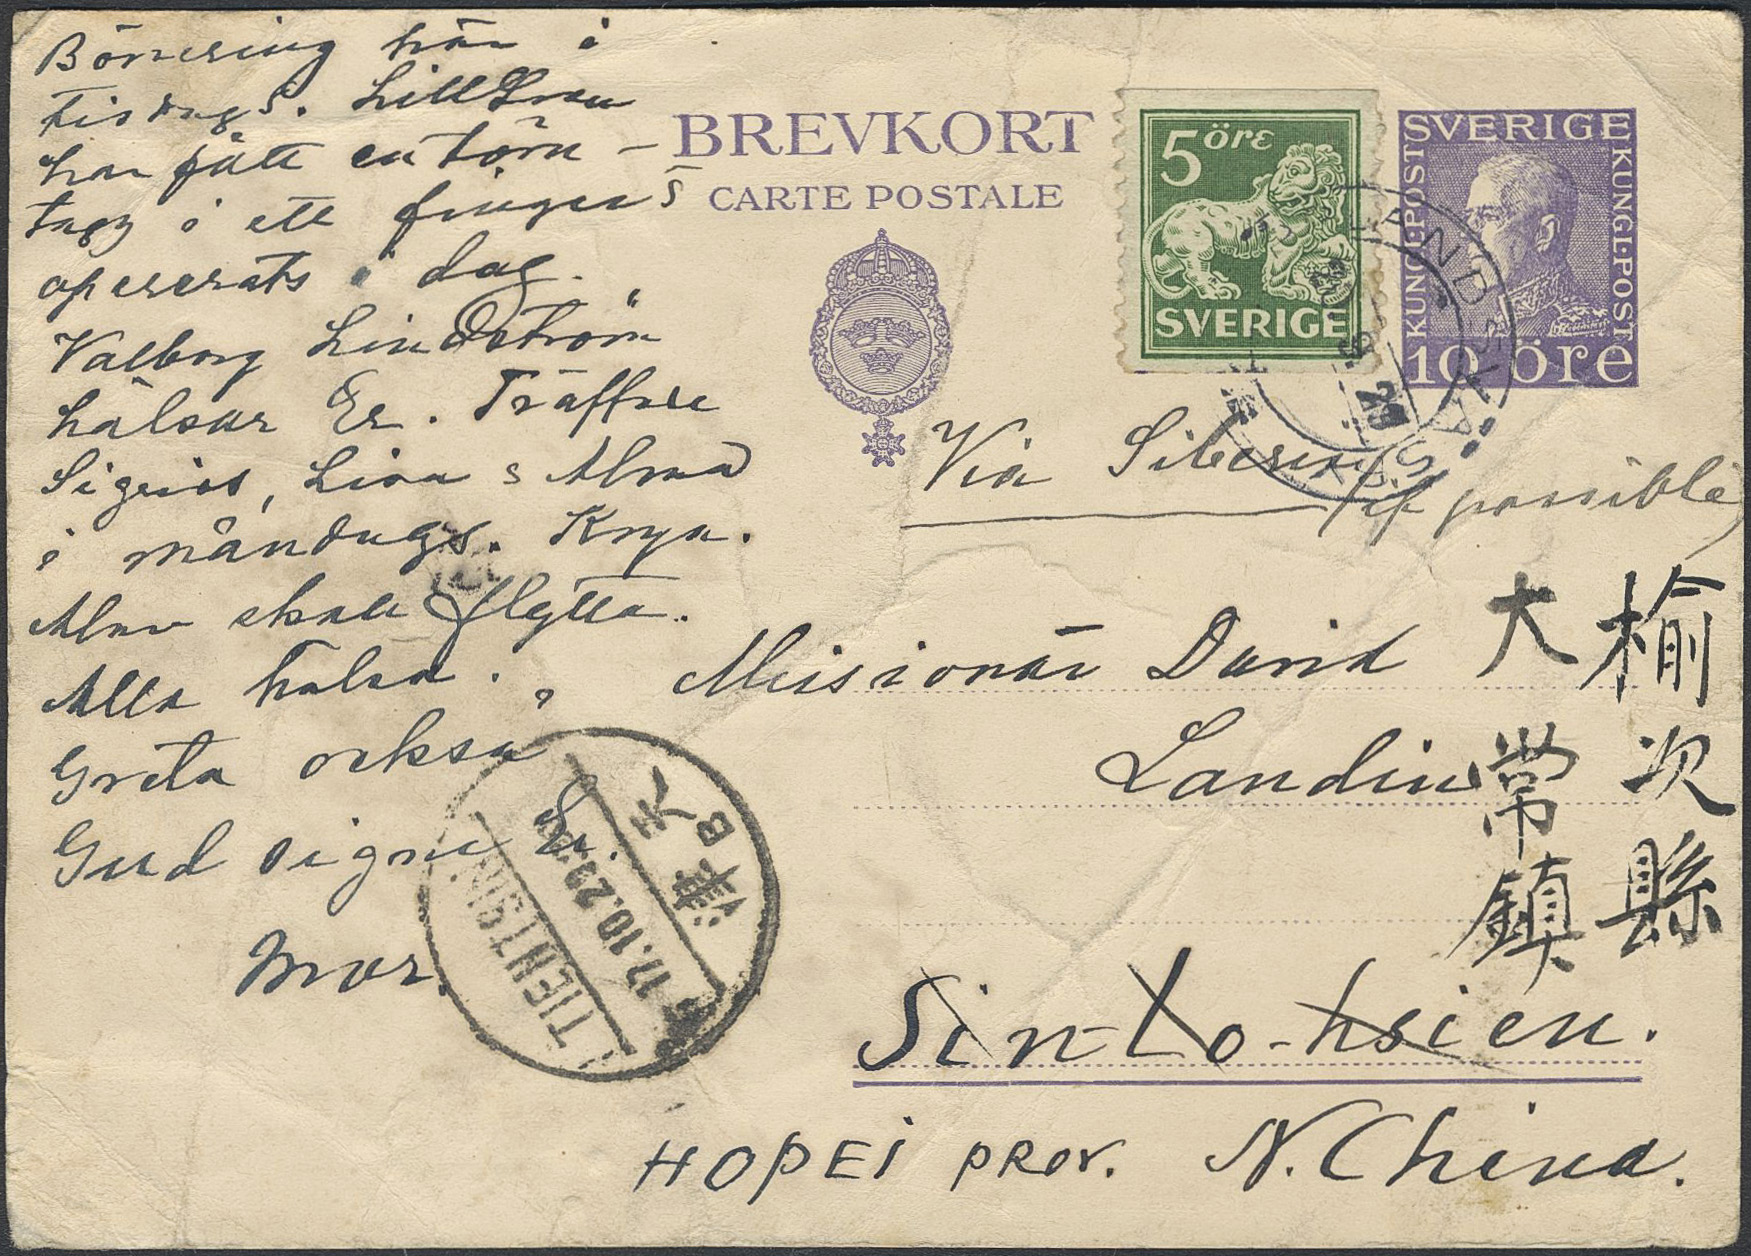 Bönering här i
tisdags. Lill Svea
har fått en törn-
tagg i ett finger s
opererats i dag.
Valborg Lindström
hälsar Er. Träffade
Sigrid, Lisa s Alma
i måndags. Krya.
Alma skall flytta.
Alla hälsa.
Greta också
Gud signe Er.
Mor.
BREVKORT
CARTE POSTALE
5 öre
SVERIGE
SVERIGE
KUNGL·POST
KUNGL·POST
10 öre
29
Via Siberia (if possible)
Missionär David
Landin
Sin-Lo-hsien.
HOPEI PROV. N. China.
榆次縣
大常鎮
TIENTSIN
17.10.29
天津
B